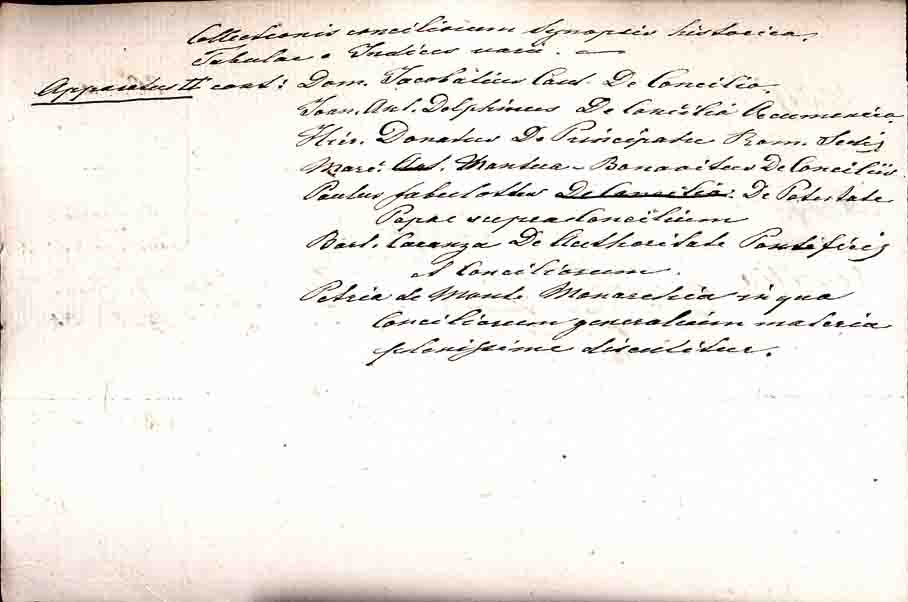 Collectionis conciliorum Synopsis historica.
Tabulae & Indices varii. —
Apparatus IIs cont: Dom. Jacobatius Card. De Concilio.
Joan. Ant. Delphinus De Concilio Oecumenico
Hier. Donatus De Principatu Rom. Sedis
Marc. Ant. Mantua-Bonavitus De Conciliis.
Paulus fabulottus De Concilio. De Potestate
Papae supra Concilium
Bart. Caranza De Authoritate Pontificis
et Conciliorum.
Petria de Monte Monarchia in qua
Conciliorum generalium materia
plenissime discutitur.